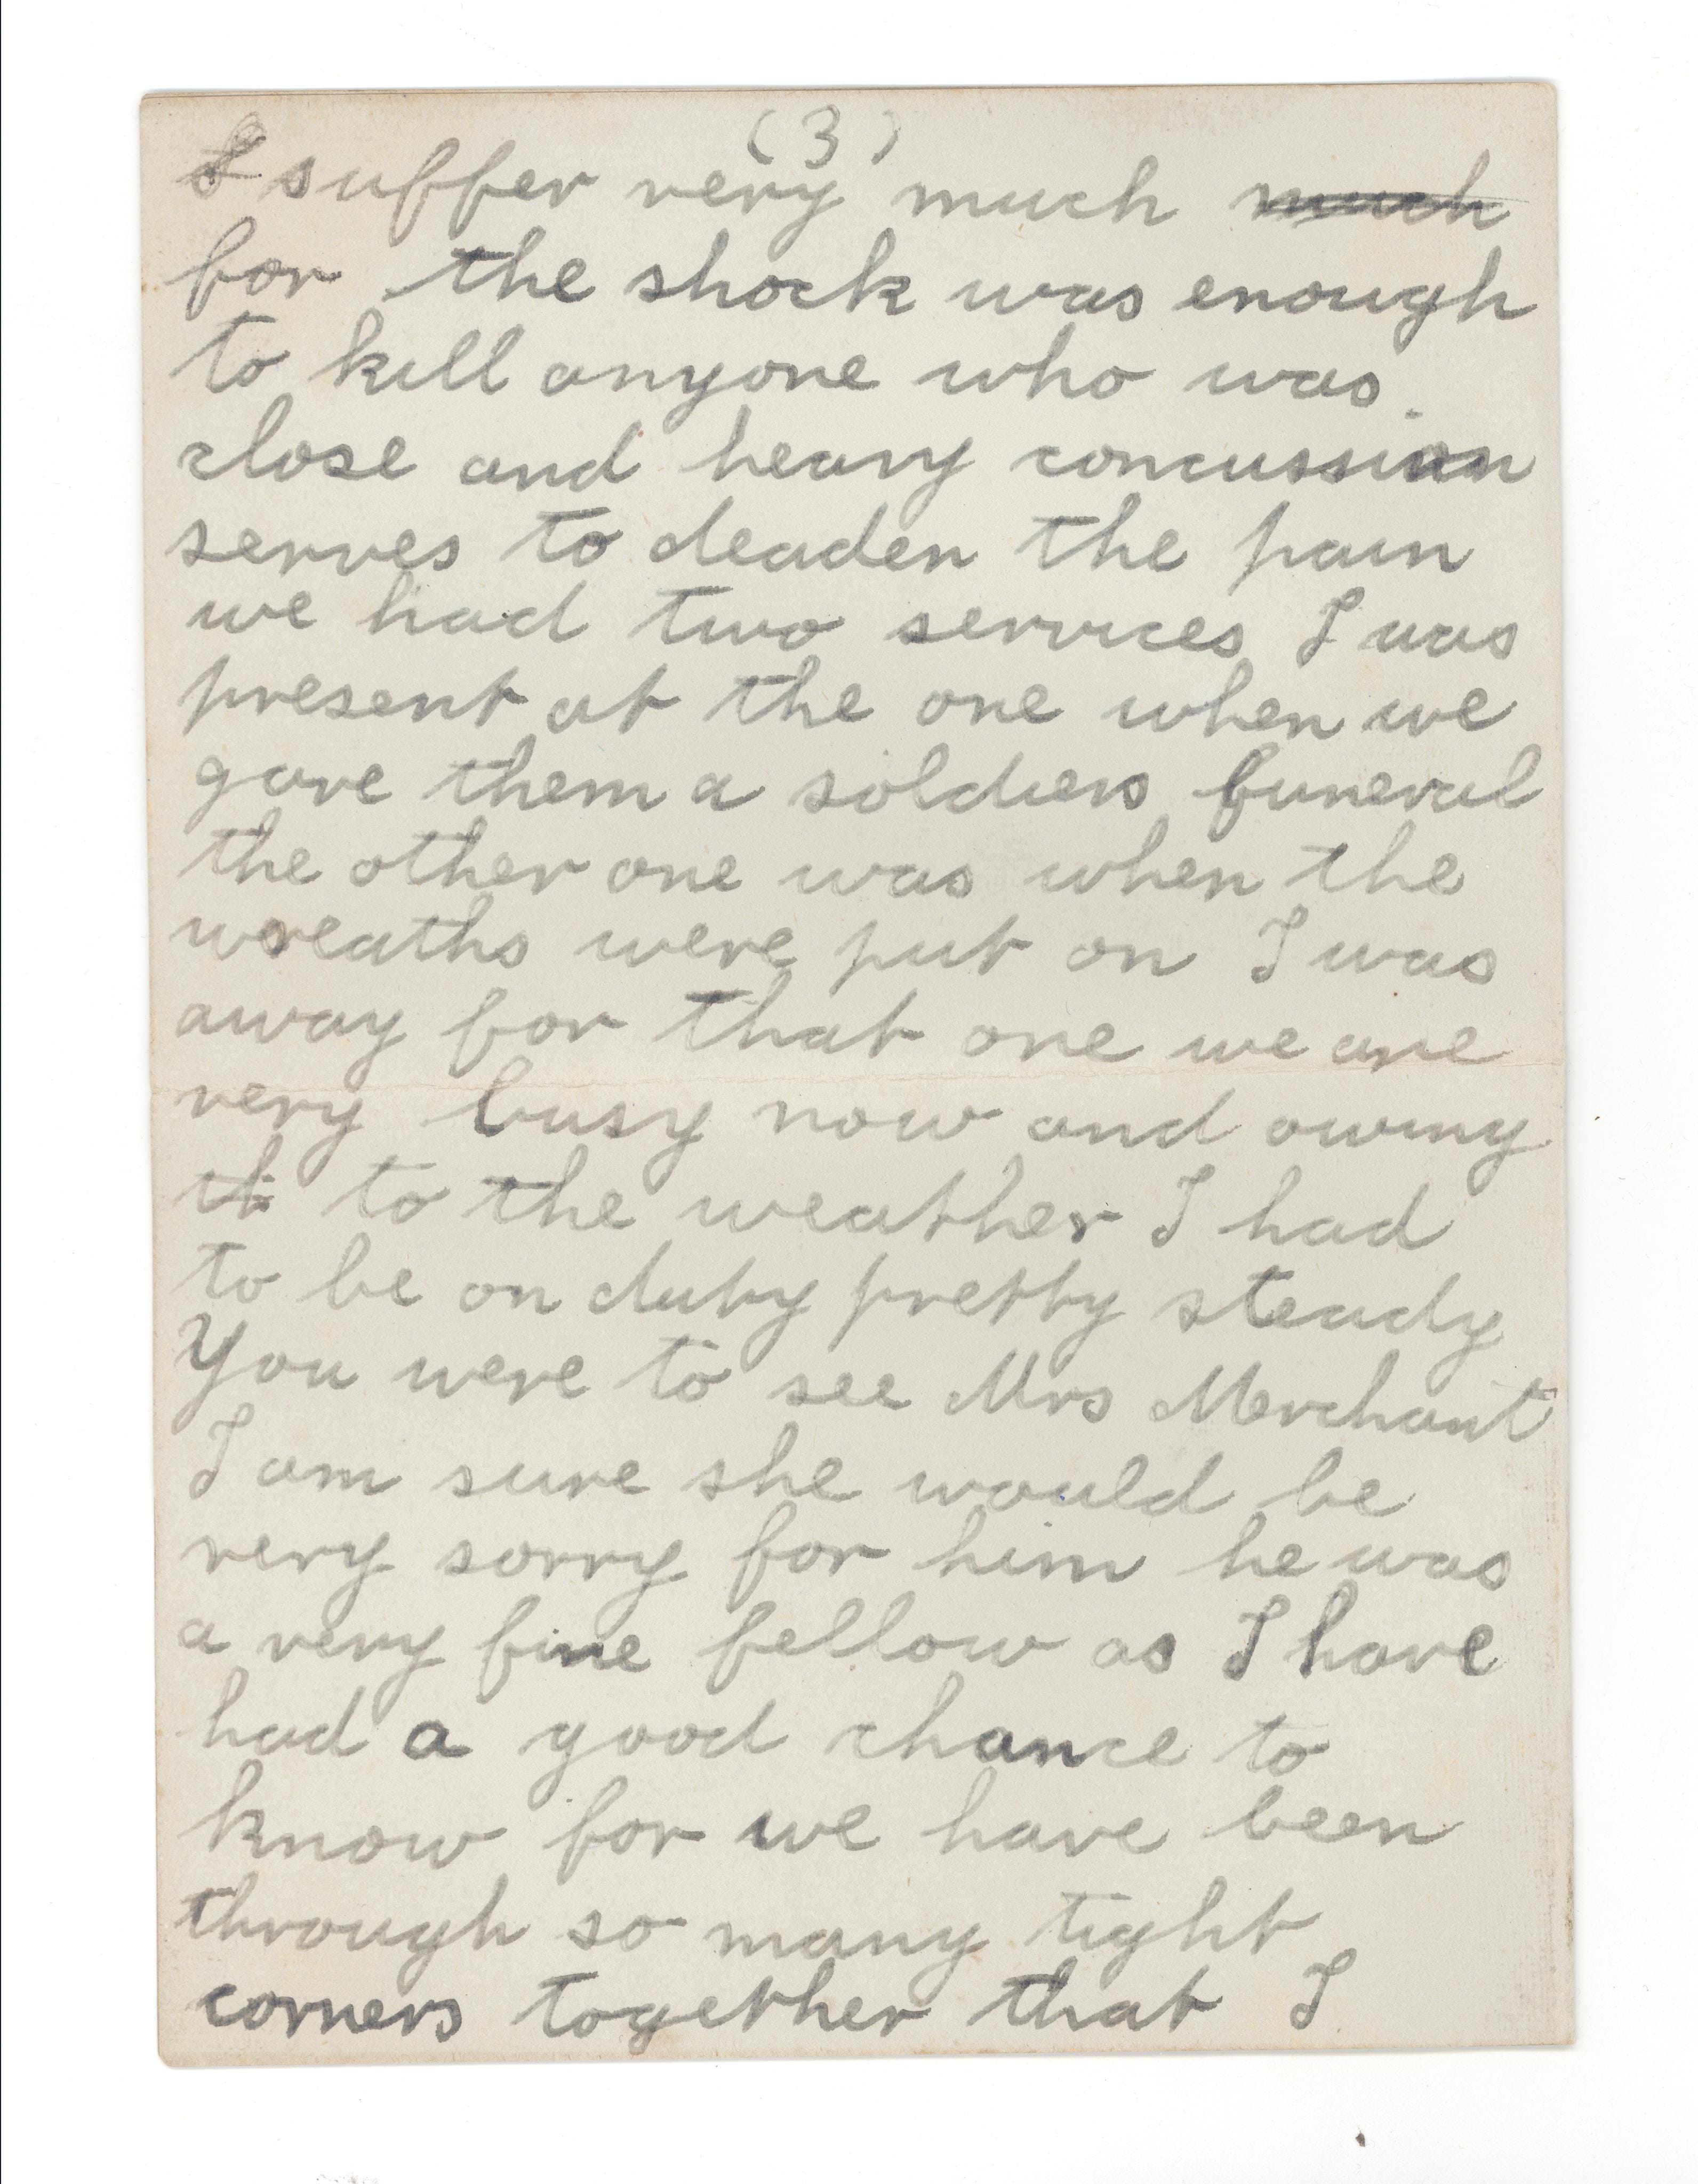 (3)
I suffer very much much
for the shock was enough
to kill anyone who was
close and heavy concussion
serves to deaden the pain
we had two services I was
present at the one when we
gave them a soldiers funeral
the other one was when the
wreaths were put on I was
away for that one we are
very busy now and owing
to the weather I had
to be on duty pretty steady
You were to see Mrs Merchant
I am sure she would be
very sorry for him he was
a very fine fellow as I have
had a good chance to
know for we have been
through so many tight
corners together that I